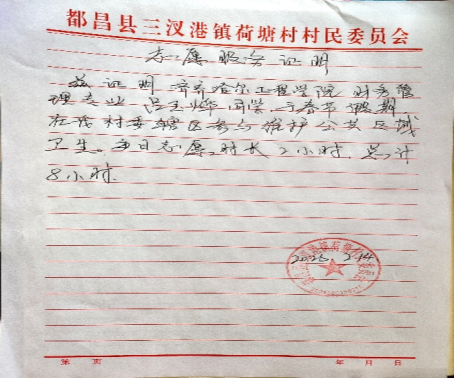 都昌县三汊港镇荷塘村村民委员会
志愿服务证明
兹证明 齐齐哈尔工程学院 财务管
理专业 同学 于春节假期
在我村委辖区参与维护公共区域
卫生。每日志愿时长2小时，总计
8小时.
2.14
第 页 年 月 日